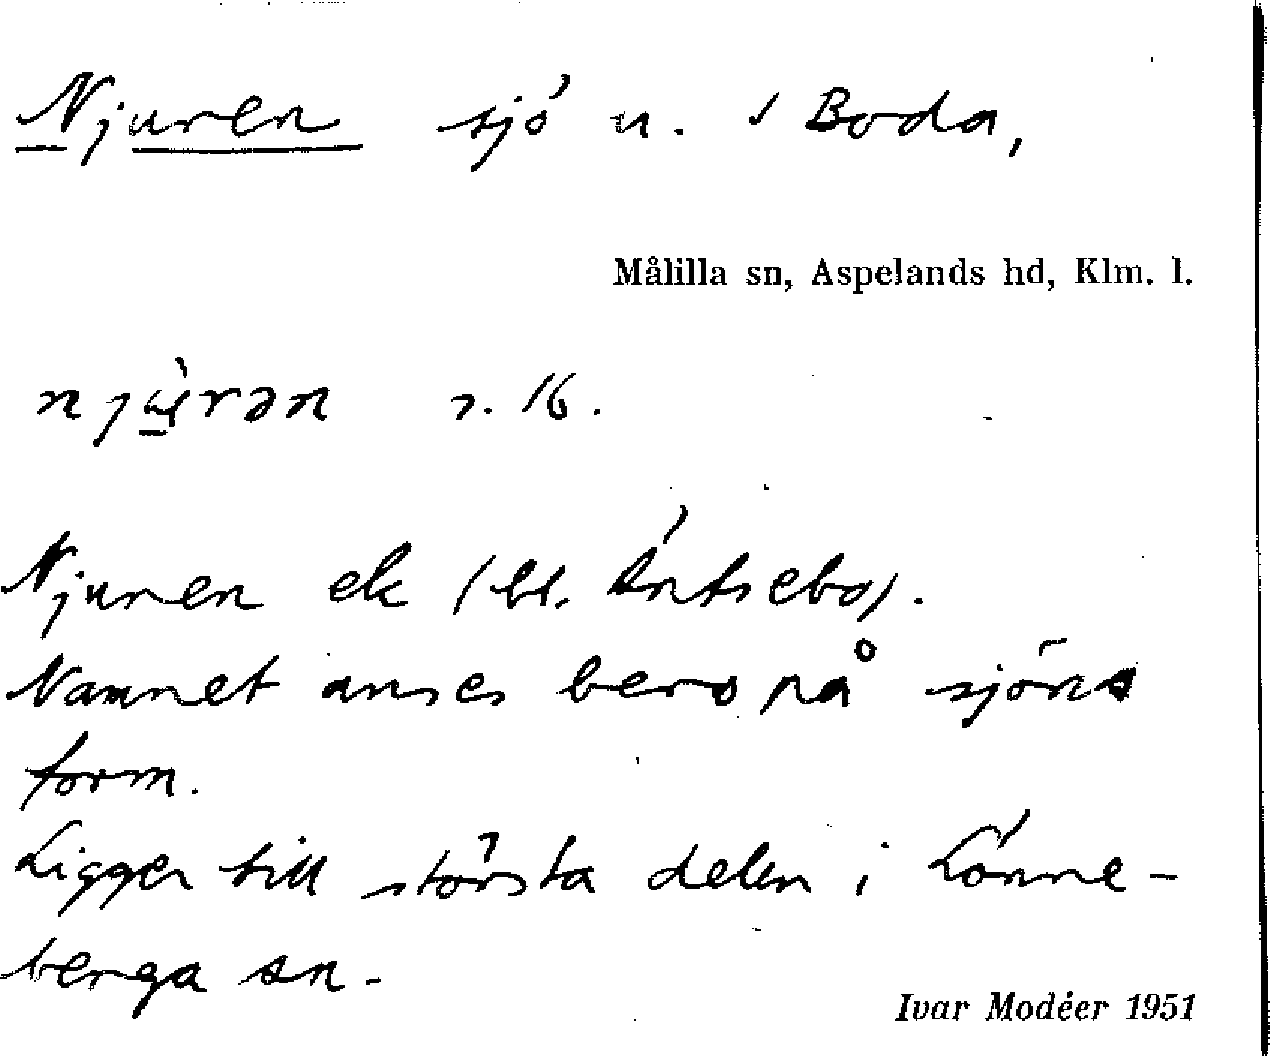 Njuren sjö n. √ Boda,
Målilla sn, Aspelands hd, Klm. l.
njùrən s. 16.
Njuren ek (bl. Äntsebo).
Namnet anses bero på sjöns
form.
Ligger till största delen i Lönne-
berga sn.
Ivar Modéer 1951